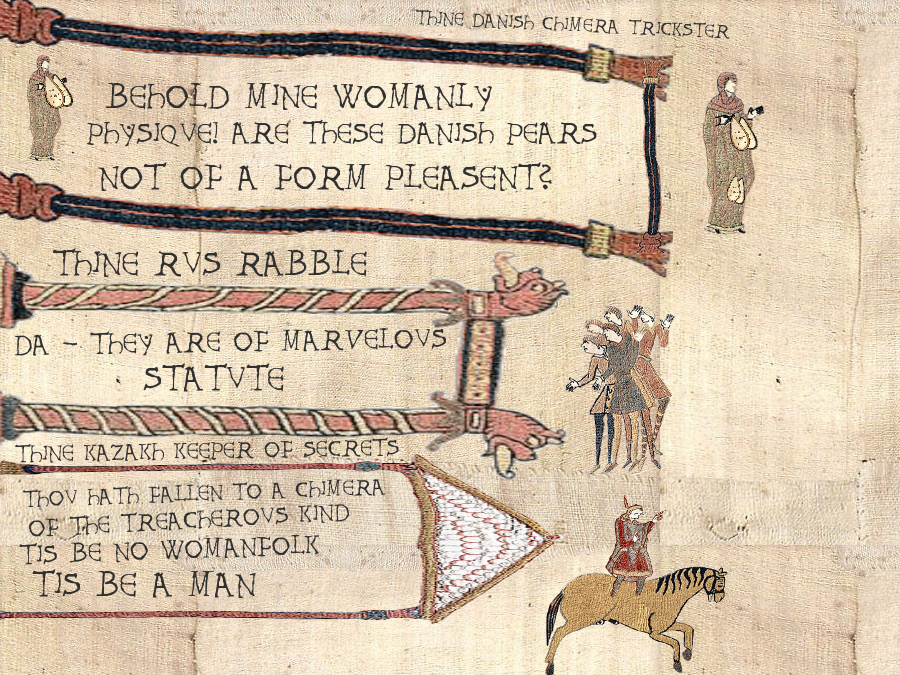 THINE DANISH CHIMERA TRICKSTER
BEHOLD MINE WOMANLY
PHYSIQVE! ARE THESE DANISH PEARS
NOT OF A FORM PLEASENT?
THINE RVS RABBLE
DA - THEY ARE OF MARVELOVS
STATVTE
THINE KAZAKH KEEPER OF SECRETS
THOV HATH FALLEN TO A CHIMERA
OF THE TREACHEROVS KIND
TIS BE NO WOMANFOLK
TIS BE A MAN